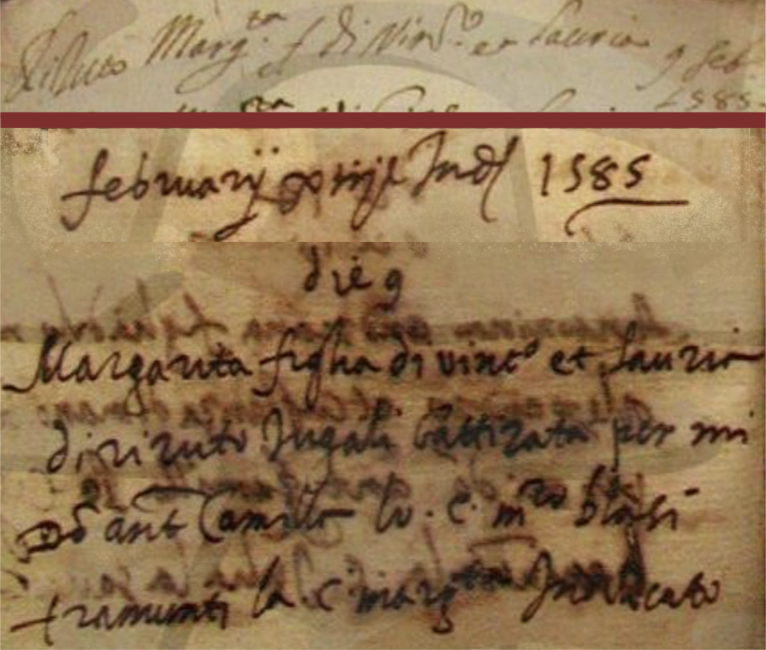 Marg.ta f di Vinc.o et Lauria 9 feb
1585
februarij xiij Ind 1585
die 9
Margarita figlia di vinc.o et Lauria
di rizuto Jugali battizata per mi
D ant Camillo lo. C. m.ro blasi
tramunti la C marg.ta